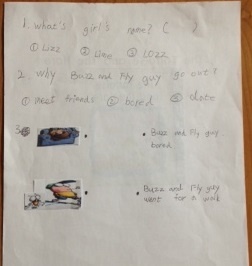 1. what's girl's name? ( )
① Lizz ② Liee ③ Lozz
2. why Buzz and Fly guy go out?
① meet friends ② bored ③ date
3.
• Buzz and Fly guy
bored
• Buzz and Fly guy
went for a walk